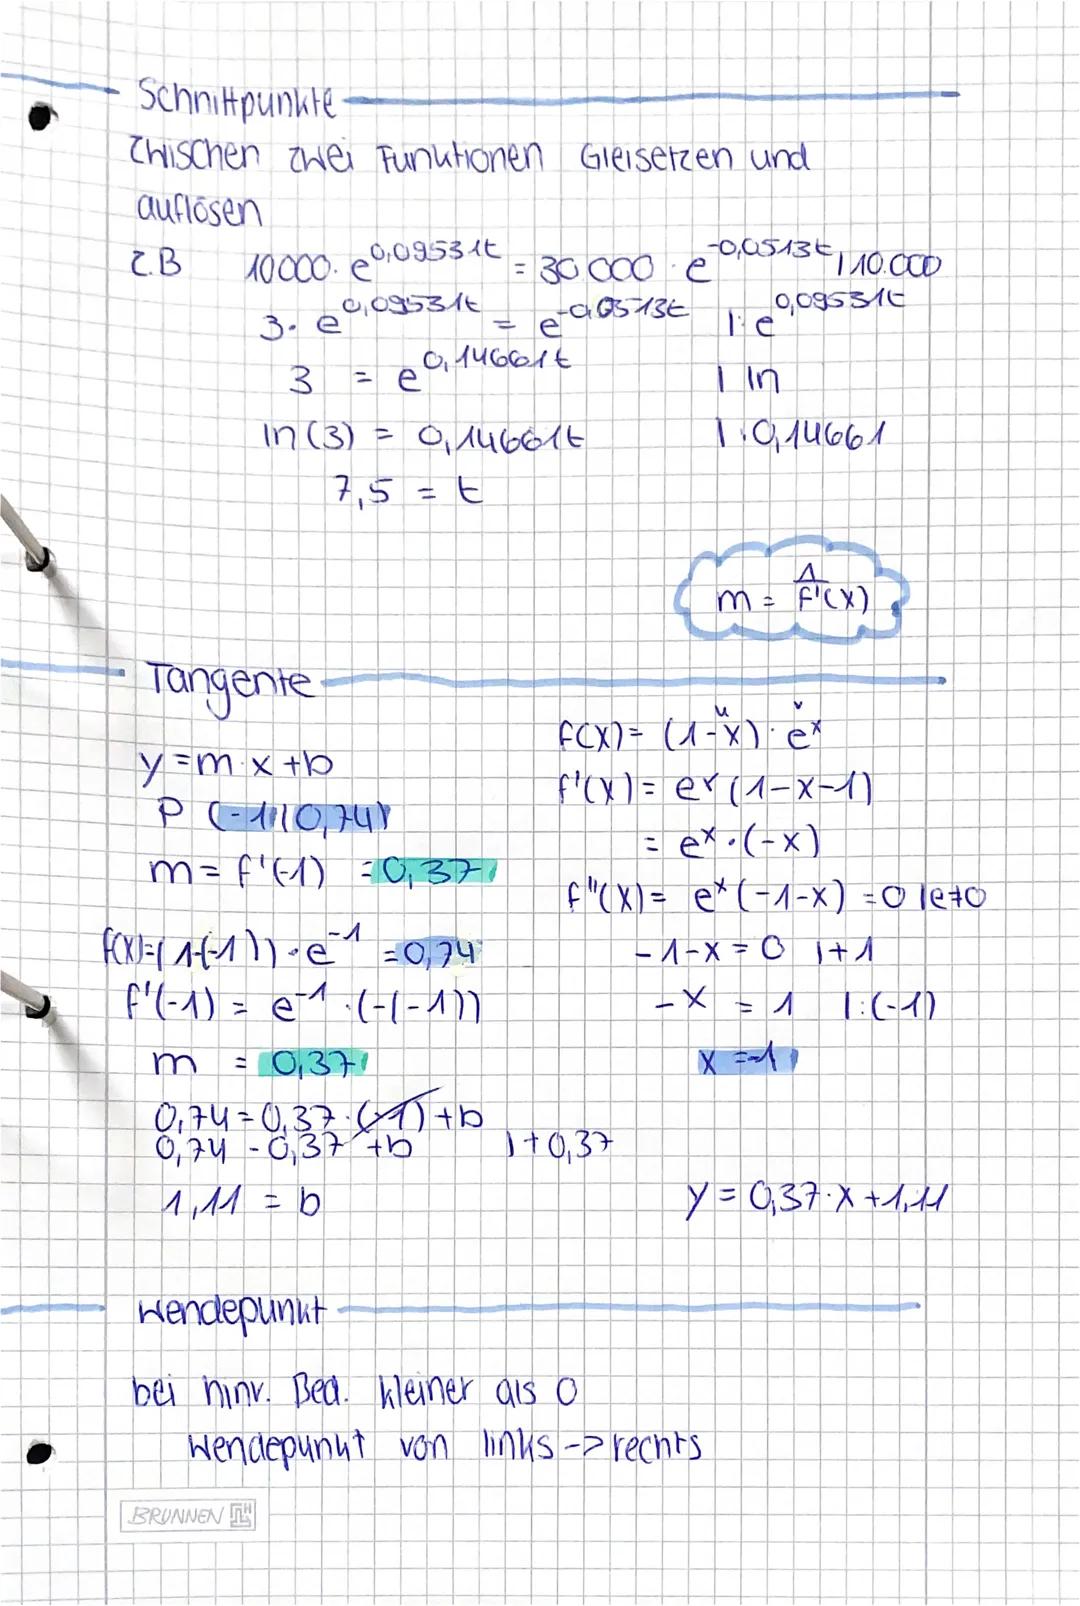 Schnittpunkte
Zwischen zwei Funktionen Gleisetzen und
auflösen
z.B 10000 · e^0,09531t = 30.000 · e^-0,0513t | 10.000
3 · e^0,09531t = e^-0,0513t | : e^0,09531t
3 = e^0,14661t | ln
ln(3) = 0,14661t | : 0,14661
7,5 = t
m = 1/f'(x)
Tangente
y = m · x + b
P (-1|0,74)
m = f'(-1) = 0,37
f(x)=(1-(-1)) · e^-1 = 0,74
f'(-1) = e^-1 · (-(-1))
m = 0,37
0,74 = 0,37 · (-1) + b
0,74 - 0,37 + b | + 0,37
1,11 = b
u v
f(x) = (1-x) · e^x
f'(x) = e^x (1-x-1)
= e^x · (-x)
f''(x) = e^x (-1-x) = 0 | e≠0
-1-x = 0 | +1
-x = 1 | : (-1)
x = -1
y = 0,37 · x + 1,11
Wendepunkt
bei hinr. Bed. kleiner als 0
Wendepunkt von links -> rechts
BRUNNEN